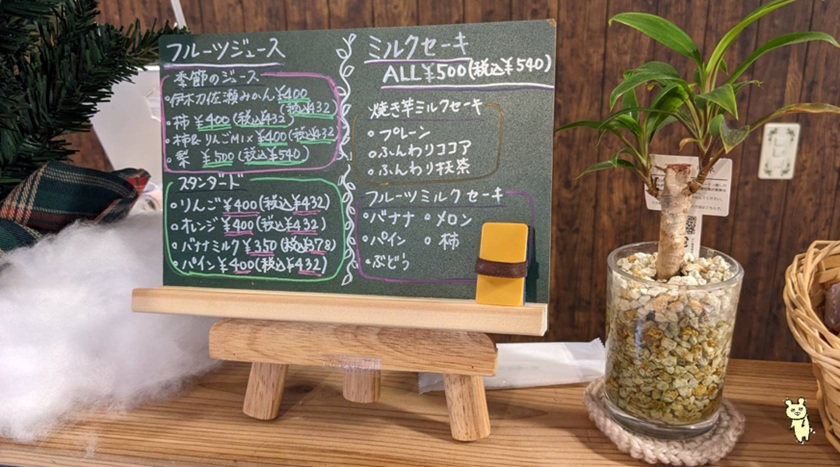 フルーツジュース
季節のジュース
・伊木力佐瀬みかん ¥400
(税込¥432)
・柿 ¥400(税込¥432)
・柿&りんごMix ¥400(税込¥432)
・梨 ¥500(税込¥540)
スタンダード
・りんご¥400(税込¥432)
・オレンジ ¥400(税込¥432)
・バナナミルク¥350(税込¥378)
・パイン¥400(税込¥432)
ミルクセーキ
ALL¥500(税込¥540)
焼き芋ミルクセーキ
○プレーン
○ふんわりココア
○ふんわり抹茶
フルーツミルクセーキ
・バナナ ○メロン
・パイン ○柿
・ぶどう